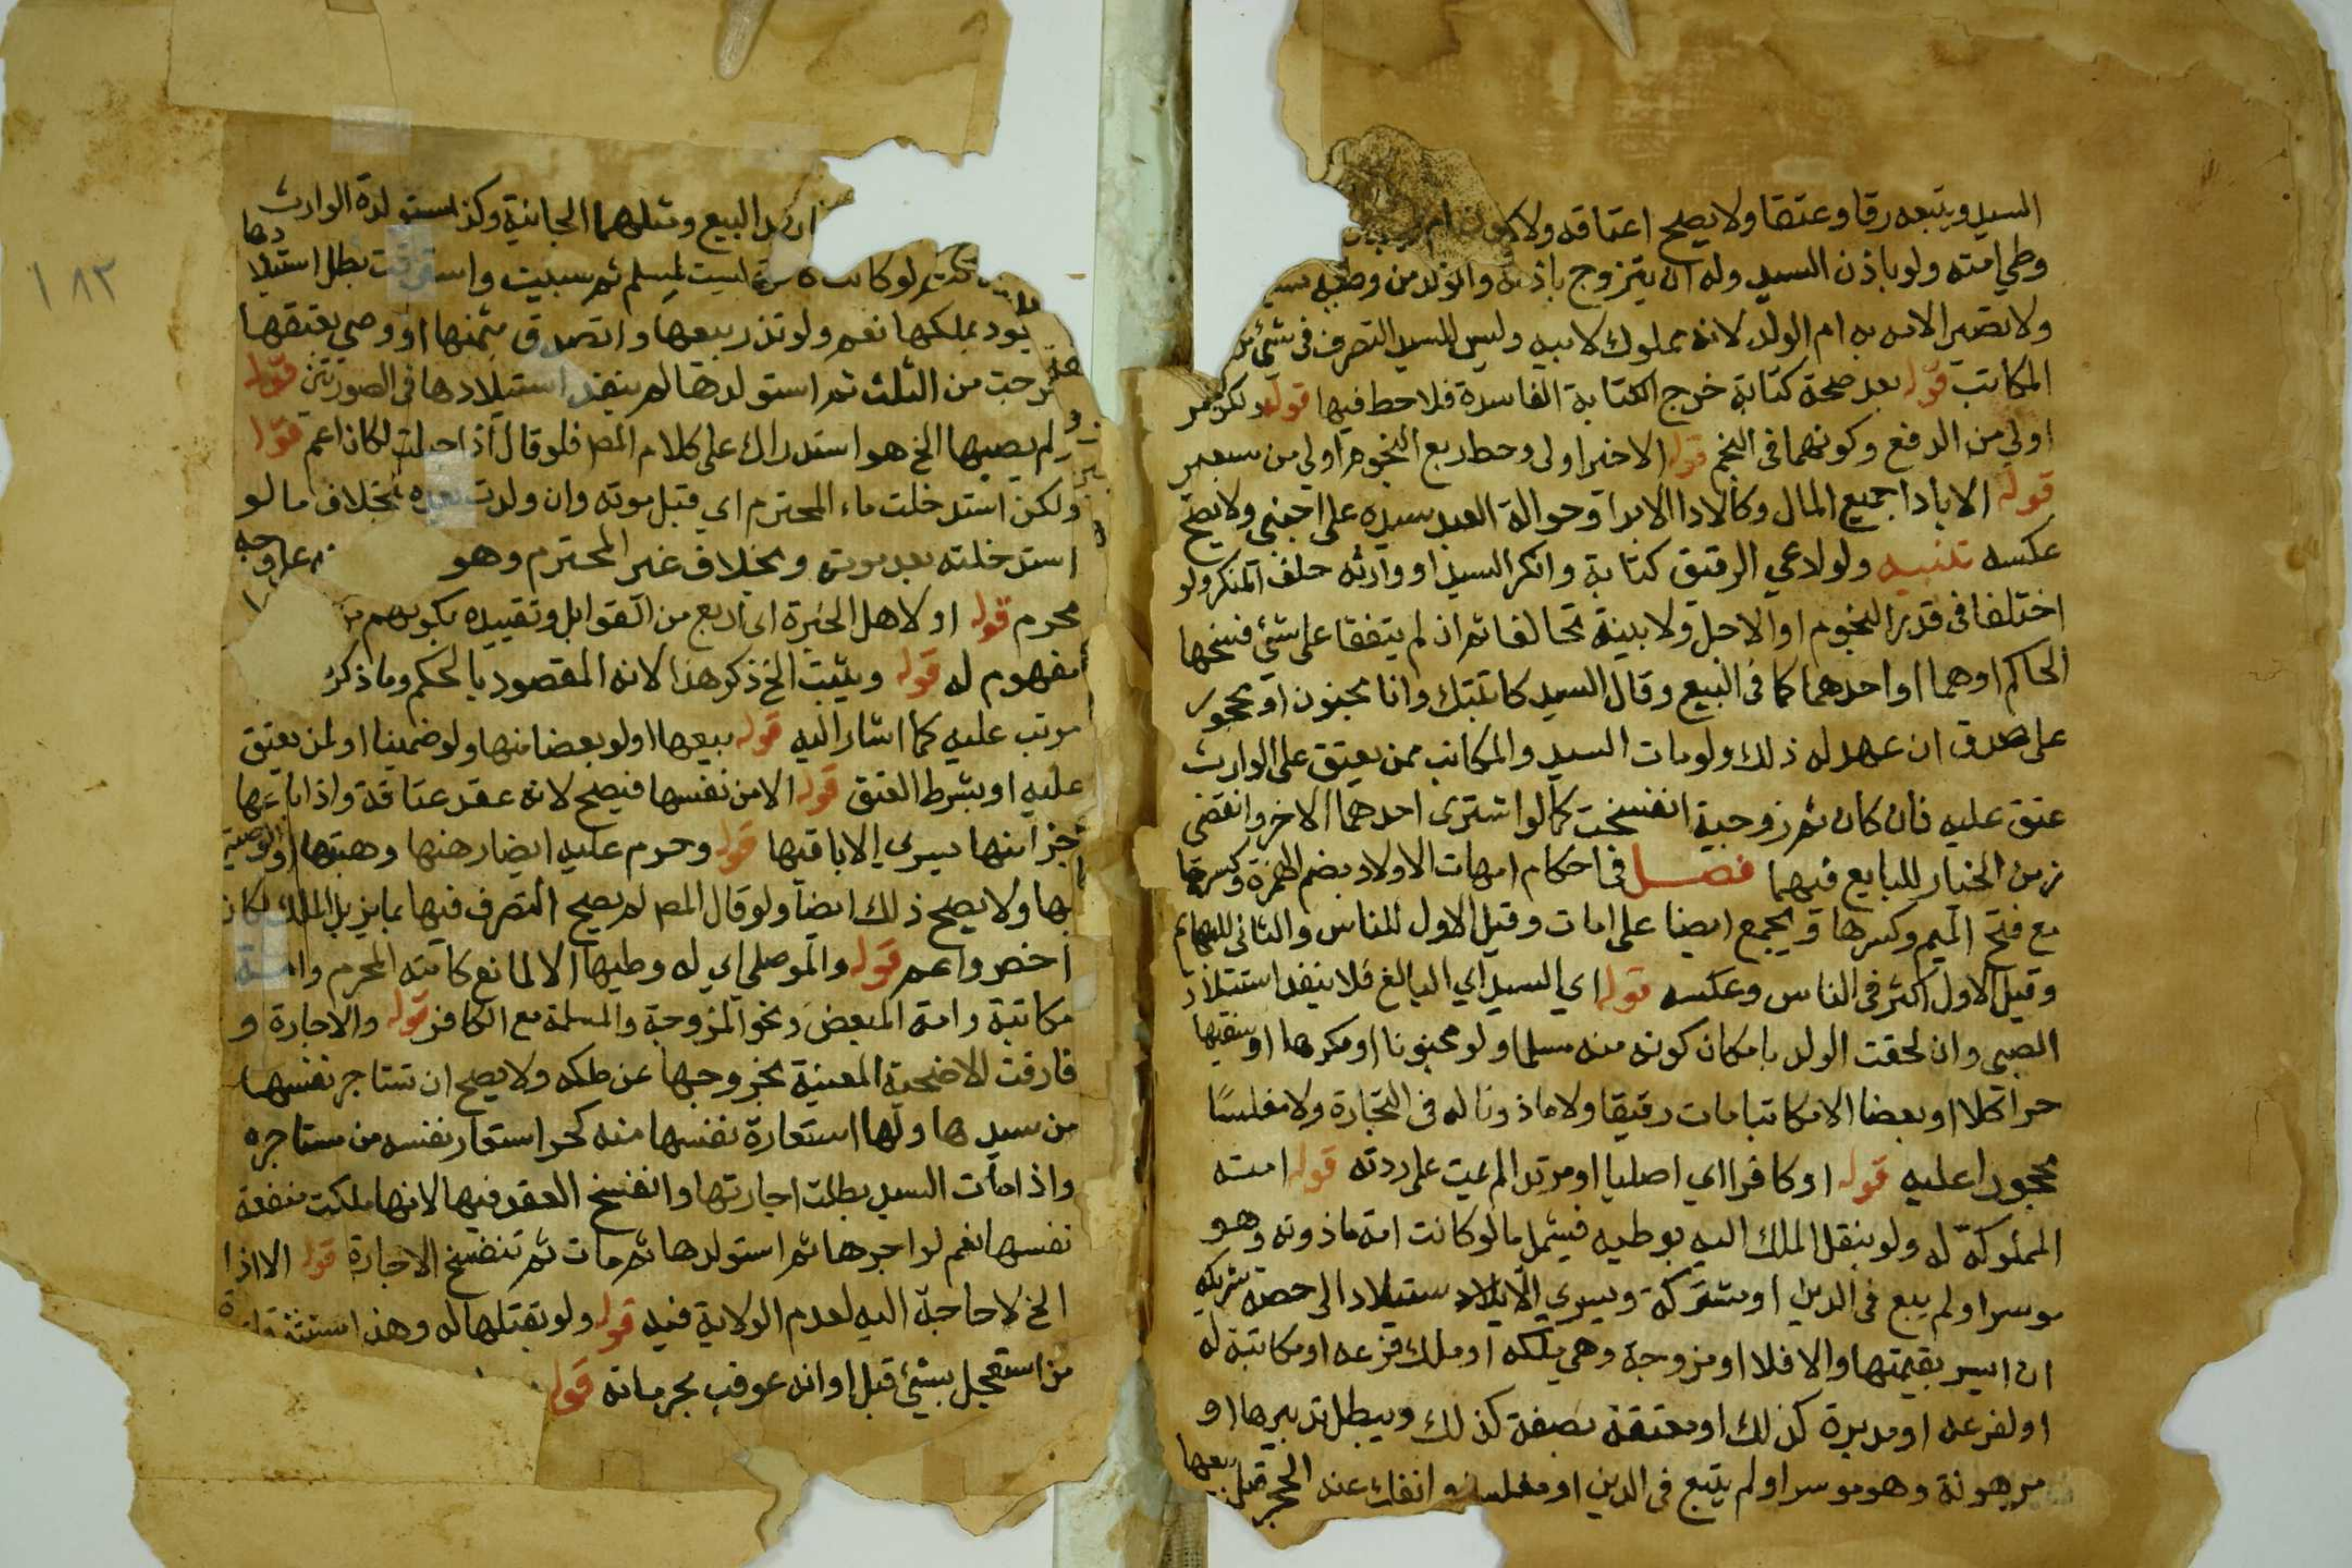 السيد ويتبعه رقا وعتقا ولا يصح اعتاقه ولا
وطي امته ولو باذن السيد وله ان يتزوج باذنه والولد من وطئه
ولا تصير الامه به ام الولد لانه مملوك لابيه وليس للسيد التصرف في شئ من
المكاتب قوله بعد صحة كتابة خرج الكتابة الفاسدة فلا حط فيها قوله ولكن
اولى من الدفع وكونهما في النجم قوله الاخير اولى وحط ربع النجوم اولى من سبع
قوله الا باداء جميع المال وكالاداء الابراء وحوالة العبد سيده على اجنبي ولا يصح
عكسه تنبيه ولو ادعى الرقيق كتابة وانكر السيد او وارثه حلف المنكر ولو
اختلفا في قدر النجوم او الاجل ولا بينة تحالفا ثم ان لم يتفقا على شئ فسخها
الحاكم او هما او احدهما كما في البيع وقال السيد كاتبتك وانا مجنون او محجور
على صدق ان عهد له ذلك ولو مات السيد والمكاتب ممن يعتق على الوارث
عتق عليه فان كان ثم زوجية انفسخت كما لو اشترى احدهما الاخر وانقضى
زمن الخيار للبايع فيهما فصل في احكام امهات الاولاد بضم الهمزة وكسرها
مع فتح الميم وكسرها ويجمع ايضا على امات وقيل الاول للناس والثاني للبهائم
وقيل الاول اكثر في الناس وعكسه قوله اي السيد اي البالغ فلا ينفذ استيلاد
الصبي وان لحقت الولد بامكان كونه منه مسلما ولو مجنونا او مكرها او سفيها
حرا كلا او بعضا لا مكاتبا مات رقيقا ولا ماذونا له في التجارة ولا مفلسا
محجورا عليه قوله او كافرا اي اصليا او مرتدا لم يمت على ردته قوله امته
المملوكة له ولو بنقل الملك اليه بوطيه فيشمل ما لو كانت امة ماذونه وهو
موسر او لم يبع في الدين او مشتركة ويسري الايلاد الى حصة شريكه
ان ايسر بقيمتها والا فلا او مزوجة وهي ملكه او ملك فرعه او مكاتبة له
او لفرعه او مدبرة كذلك او معتقة بصفة كذلك ويبطل تدبيرها او
مرهونة وهو موسر او لم يتبع في الدين او مفلس وانفك عنه الحجر قبل بيعها
البيع ومثلهما الجانية وكذا مستولدة الوارث
لو كانت ليست لمسلم ثم سبيت واسترقت بطل استيلادها
يعود بملكها نعم ولو نذر بيعها والتصدق بثمنها او وصى بعتقها
خرجت من الثلث ثم استولدها لم ينفذ استيلادها في الصورتين قوله
لم يصبها الخ هو استدراك على كلام المص فلو قال اذا احبلت لكان اعم قوله
ولكن استدخلت ماءه المحترم اي قبل موته وان ولدت بعده بخلاف ما لو
استدخلته بعد موته وبخلاف غير المحترم وهو على وجه
محرم قوله او لاهل الخبرة اي اربع من القوابل وتقييده بكونهم
مفهوم له قوله ويثبت الخ ذكر هذا لانه المقصود بالحكم وما ذكر
مرتب عليه كما اشار اليه قوله بيعها او لو بعضا منها ولو ضمنيا او لمن يعتق
عليه او بشرط العتق قوله الا من نفسها فيصح لانه عقد عتاقة واذا باعها
جزءا منها سرى الى باقيها قوله وحرم عليه ايضا رهنها وهبتها والوصية
بها ولا يصح ذلك ايضا ولو قال المص لم يصح التصرف فيها بما يزيل الملك لكان
اخصر واعم قوله والموصلي اي له وطيها الا لمانع كامته المحرم وامة
مكاتبة وامة المبعض ونحو المزوجة والمسلمة مع الكافر قوله والاجارة و
فارقت الاضحية المعينة بخروجها عن ملكه ولا يصح ان تستاجر نفسها
من سيدها ولها استعارة نفسها منه كحر استعار نفسه من مستاجره
واذا مات السيد بطلت اجارتها وانفسخ العقد فيها لانها ملكت منفعة
نفسها نعم لو اجرها ثم استولدها ثم مات ثم تنفسخ الاجارة قوله الا اذا
الخ لا حاجة اليه لعدم الولاية فيه قوله ولو بقتلها له وهذا
من استعجل بشئ قبل اوانه عوقب بحرمانه قوله
١٨٣